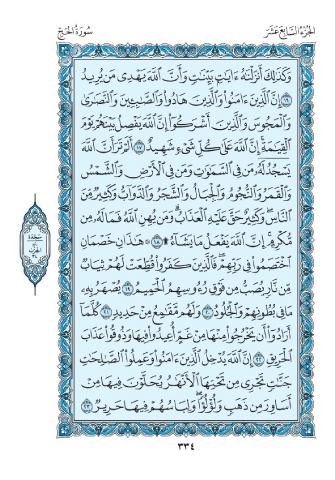 الجزء السابع عشر
سورة الحج
وَكَذَٰلِكَ أَنزَلْنَٰهُ ءَايَٰتٍۭ بَيِّنَٰتٍ وَأَنَّ ٱللَّهَ يَهْدِى مَن يُرِيدُ
١٦ إِنَّ ٱلَّذِينَ ءَامَنُوا۟ وَٱلَّذِينَ هَادُوا۟ وَٱلصَّٰبِـِٔينَ وَٱلنَّصَٰرَىٰ
وَٱلْمَجُوسَ وَٱلَّذِينَ أَشْرَكُوٓا۟ إِنَّ ٱللَّهَ يَفْصِلُ بَيْنَهُمْ يَوْمَ
ٱلْقِيَٰمَةِ إِنَّ ٱللَّهَ عَلَىٰ كُلِّ شَىْءٍ شَهِيدٌ ١٧ أَلَمْ تَرَ أَنَّ ٱللَّهَ
يَسْجُدُ لَهُۥ مَن فِى ٱلسَّمَٰوَٰتِ وَمَن فِى ٱلْأَرْضِ وَٱلشَّمْسُ
وَٱلْقَمَرُ وَٱلنُّجُومُ وَٱلْجِبَالُ وَٱلشَّجَرُ وَٱلدَّوَآبُّ وَكَثِيرٌ مِّنَ
ٱلنَّاسِ وَكَثِيرٌ حَقَّ عَلَيْهِ ٱلْعَذَابُ وَمَن يُهِنِ ٱللَّهُ فَمَا لَهُۥ مِن
مُّكْرِمٍ إِنَّ ٱللَّهَ يَفْعَلُ مَا يَشَآءُ ۩ ١٨ هَٰذَانِ خَصْمَانِ
ٱخْتَصَمُوا۟ فِى رَبِّهِمْ فَٱلَّذِينَ كَفَرُوا۟ قُطِّعَتْ لَهُمْ ثِيَابٌ
مِّن نَّارٍ يُصَبُّ مِن فَوْقِ رُءُوسِهِمُ ٱلْحَمِيمُ ١٩ يُصْهَرُ بِهِۦ
مَا فِى بُطُونِهِمْ وَٱلْجُلُودُ ٢٠ وَلَهُم مَّقَٰمِعُ مِنْ حَدِيدٍ ٢١ كُلَّمَآ
أَرَادُوٓا۟ أَن يَخْرُجُوا۟ مِنْهَا مِنْ غَمٍّ أُعِيدُوا۟ فِيهَا وَذُوقُوا۟ عَذَابَ
ٱلْحَرِيقِ ٢٢ إِنَّ ٱللَّهَ يُدْخِلُ ٱلَّذِينَ ءَامَنُوا۟ وَعَمِلُوا۟ ٱلصَّٰلِحَٰتِ
جَنَّٰتٍ تَجْرِى مِن تَحْتِهَا ٱلْأَنْهَٰرُ يُحَلَّوْنَ فِيهَا مِنْ
أَسَاوِرَ مِن ذَهَبٍ وَلُؤْلُؤًا وَلِبَاسُهُمْ فِيهَا حَرِيرٌ ٢٣
سجدة
٣٣٤